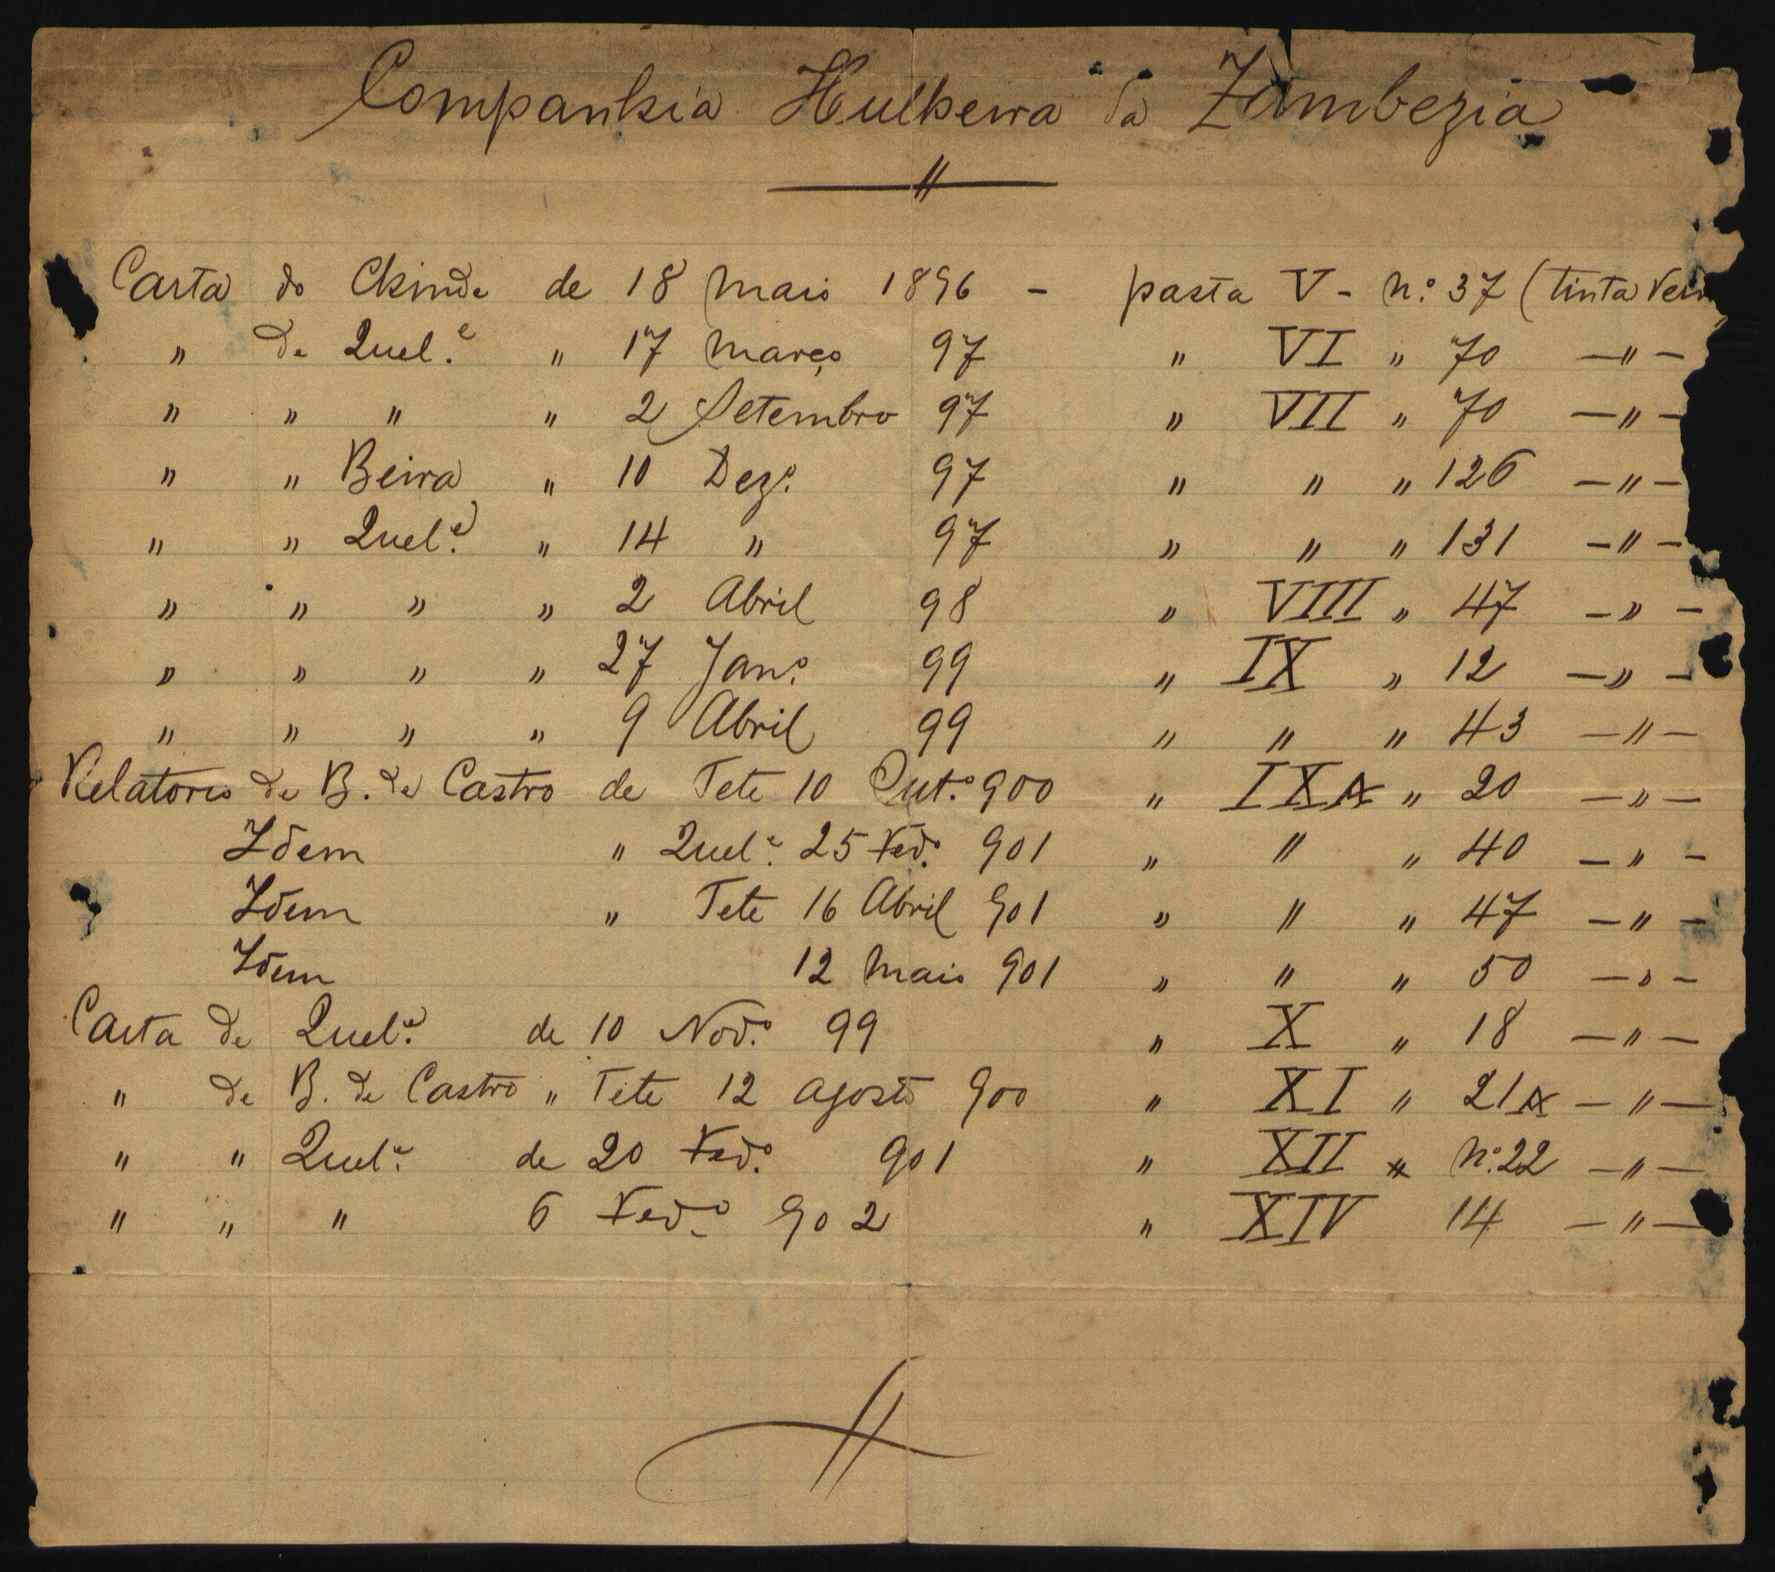 Companhia Hulheira da Zambezia
Carta do Chinde de 18 Maio 1896 - pasta V - N.º 37 (tinta
" de Quel.e " 17 Março 97 " VI " 70 — " —
" " " " 2 Setembro 97 " VII " 70 — " —
" " Beira " 10 Dez.º 97 " " " 126 — " —
" " Quel.e " 14 " 97 " " " 131 — " —
" " " " 2 Abril 98 " VIII " 47 — " —
" " " " 27 Jan.º 99 " IX " 12 — " —
" " " " 9 Abril 99 " " " 43 — " —
Relatorio de B. de Castro de Tete 10 Out.º 900 " IXA " 20 — " —
Idem " Quel.e 25 Fev.º 901 " " " 40 — " —
Idem " Tete 16 Abril 901 " " " 47 — " —
Idem 12 Maio 901 " " " 50 — " —
Carta de Quel.e de 10 Nov.º 99 " X " 18 — " —
" de B. de Castro " Tete 12 Agosto 900 " XI " 21A — " —
" " Quel.e de 20 Fev.º 901 " XII " N.º 22 — " —
" " " 6 Fev.º 902 " XIV 14 — " —